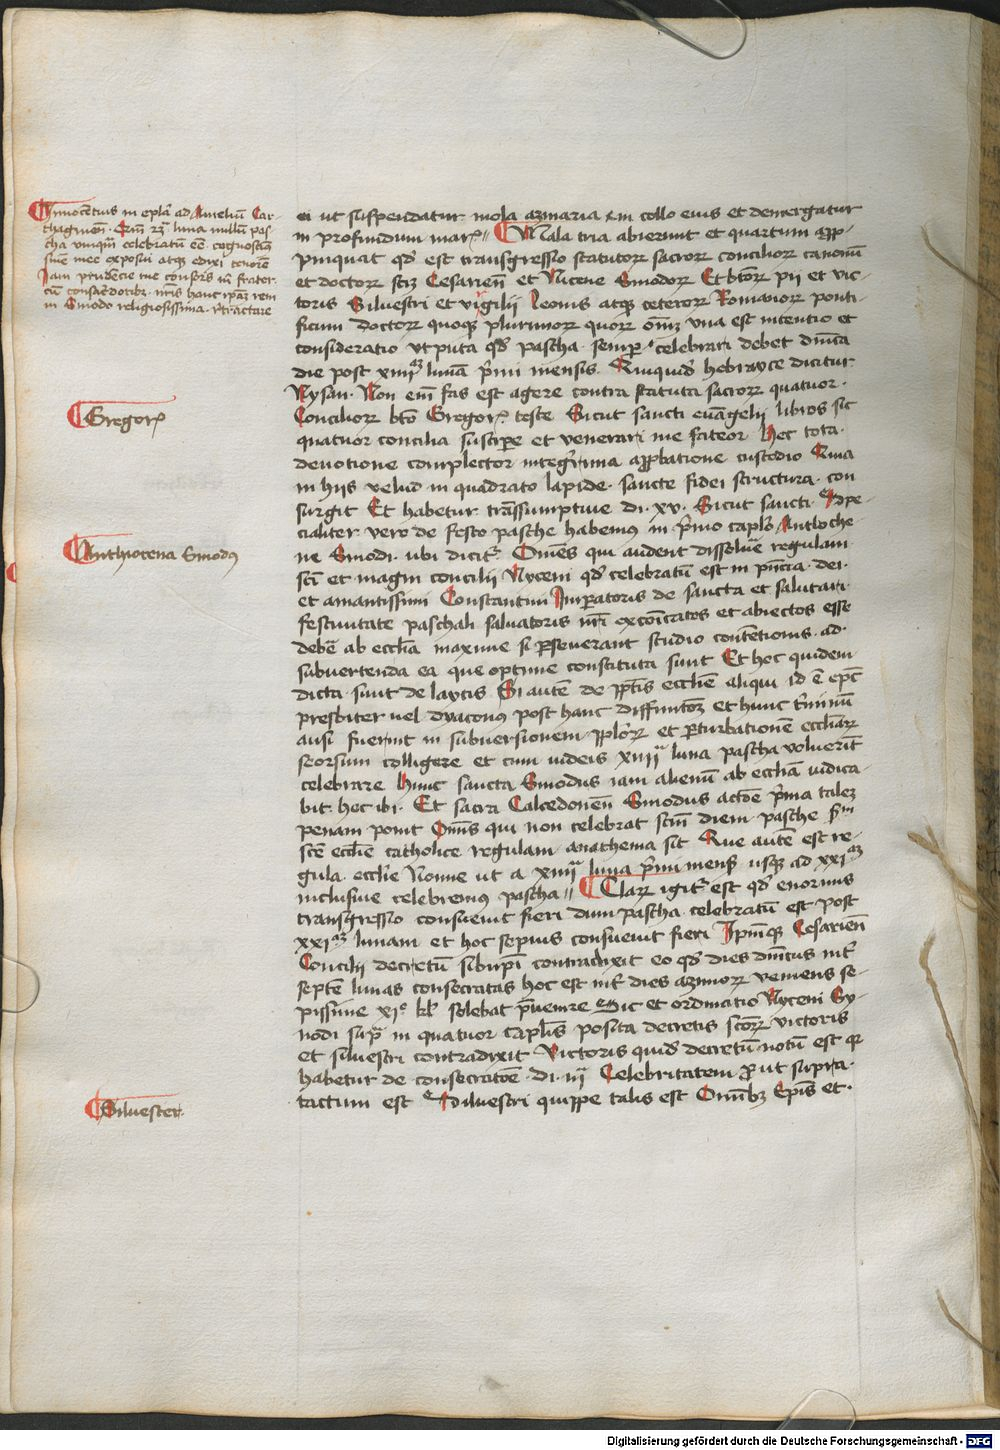 Innocentius in epla ad Aurelium Car-
thaginen. Cum 22a luna nullum pas-
cha unquam celebratum esse cognoscam
suine mee exposui atque edixi tenorem
Iam prudencie tue consors mi frater
cum consacerdotibus nostris hanc ipsam rem
in Sinodo religiosissima retractare
ei ut suspendatur mola azinaria in collo eius et demergatur
in profundum maris Mala tria abierunt et quartum app-
pinquat qd est transgressio statutorum sacrorum conciliorum canonum
et doctorum scilicet Cesarien et Nicene Sinodorum Et btorum pii et vic-
toris Silvestri et vigilii Leonis atque ceterorum Romanorum ponti-
ficum doctorum quoque plurimorum quorum omnium una est intentio et
consideratio ut puta qd pascha semper celebrari debet dominica
die post xiiiiam lunam primi mensis Quiquid hebrayce dicitur
Nysan. Non enim fas est agere contra statuta sacrorum quatuor
Conciliorum bto Gregorio teste Sicut sancti ewangelii libros sic
quatuor concilia suscipere et venerari me fateor Hec tota
devotione complector integerrima approbatione custodio Quia
in hiis velud in quadrato lapide sancte fidei structura con
surgit Et habetur transsumptive di. xv. Sicut sancti Spe-
cialiter vero de festo pasche habemus in primo caplo Antioche-
ne Sinodi ubi dicitur Omnes qui audent dissolvere regulam
scti et magni concilii Nyceni qd celebratum est in presencia dei
et amantissimi Constantini Imperatoris de sancta et salutari
festivitate paschali salvatoris nostri excommunicatos et abiectos esse
debere ab ecclesia maxime si perseverant studio contentionis ad
subvertenda ea que optime constituta sunt Et hec quidem
dicta sunt de laycis Si autem de prepositis ecclesie aliqui id est epc
presbiter vel dyaconus post hanc diffinitionem et hunc terminum
ausi fuerint in subversionem populorum et perturbationem ecclesiarum
seorsum colligere et cum iudeis xiiiia luna pascha voluerint
celebrare Hunc sancta Sinodus iam alienum ab ecclesia iudica-
bit. hec ibi. Et sacra Calcedonen Sinodus actione prima talem
penam ponit Omnis qui non celebrat secundum diem pasche secundum
sancte ecclesie catholice regulam anathema sit Que autem est re-
gula ecclesie Nonne ut a xiiiia luna primi mensis usque ad xxiam
inclusive celebremus pascha Clarum igitur est qd enormis
transgressio consuevit fieri dum pascha celebratum est post
xxiam lunam et hoc sepius consuevit fieri Ipsumque Cesarien
Concilii decretum sibiipsi contradixit eo qd dies dominicus inter
septem lunas consecratas hoc est inter dies azimorum veniens se-
pissime xi. kl solebat prevenire Sic et ordinatio Nyceni Sy-
nodi supra in quatuor caplis posita decretis sanctorum victoris
et silvestri contradixit Victoris quid decretum notum est quia
habetur de consecratione di. iii Celebritatem prout supra
tactum est Silvestri quippe talis est Omnibus Episcopis et
Gregorius
Anthiocena Sinodus
Silvester.
Digitalisierung gefördert durch die Deutsche Forschungsgemeinschaft - DFG